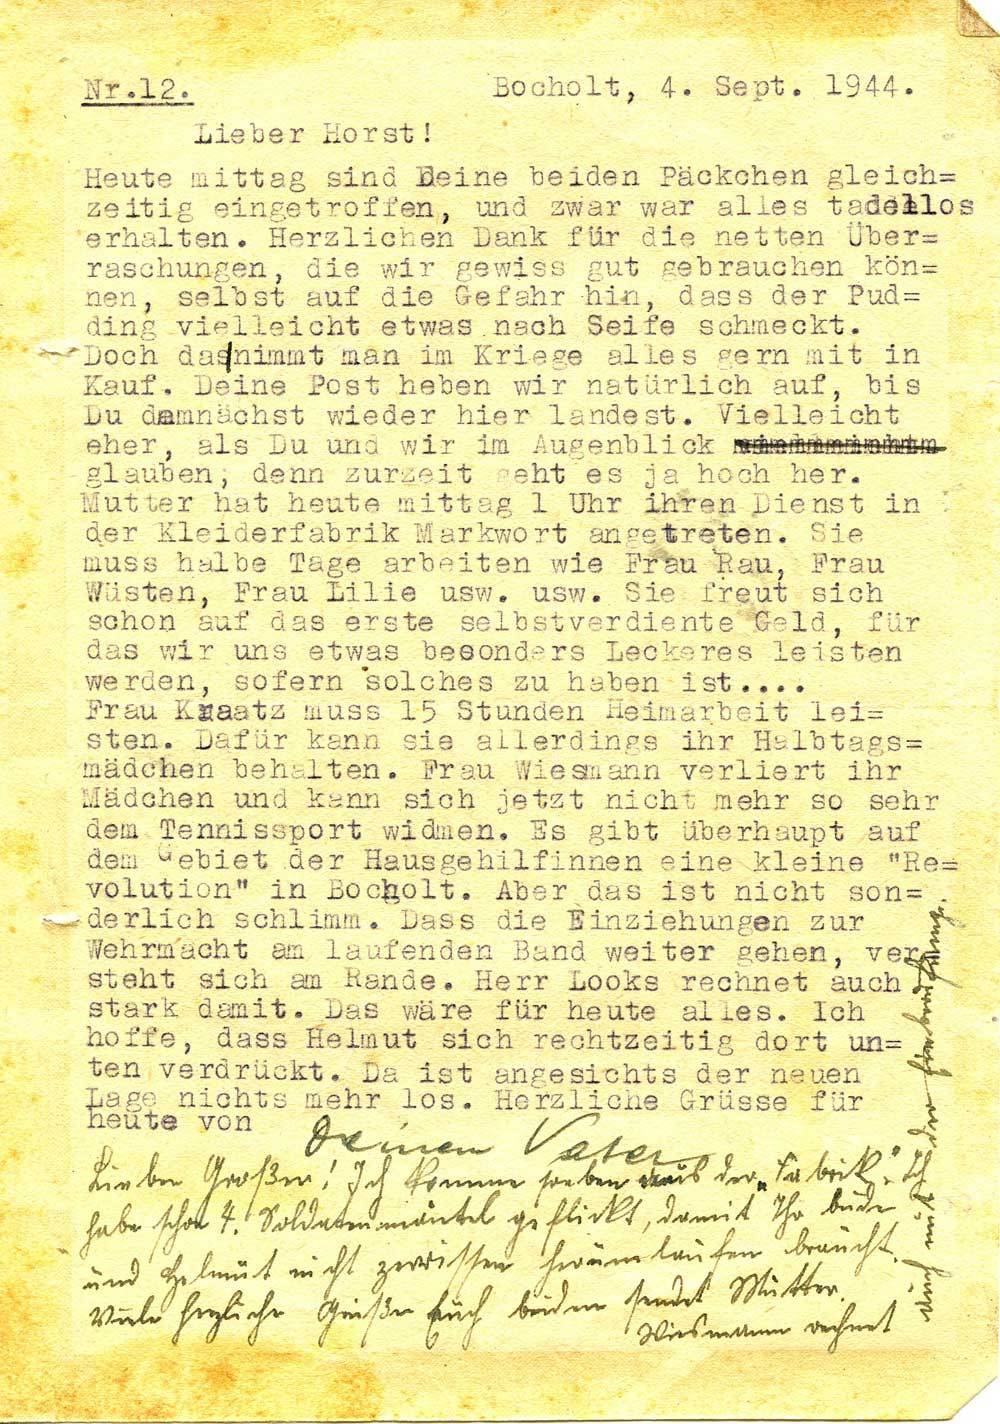 Nr.12.
Bocholt, 4. Sept. 1944.
Lieber Horst!
Heute mittag sind Deine beiden Päckchen gleich=
zeitig eingetroffen, und zwar war alles tadellos
erhalten. Herzlichen Dank für die netten Über=
raschungen, die wir gewiss gut gebrauchen kön=
nen, selbst auf die Gefahr hin, dass der Pud=
ding vielleicht etwas nach Seife schmeckt.
Doch das/nimmt man im Kriege alles gern mit in
Kauf. Deine Post heben wir natürlich auf, bis
Du demnächst wieder hier landest. Vielleicht
eher, als Du und wir im Augenblick
glauben; denn zurzeit geht es ja hoch her.
Mutter hat heute mittag 1 Uhr ihren Dienst in
der Kleiderfabrik Markwort angetreten. Sie
muss halbe Tage arbeiten wie Frau Rau, Frau
Wüsten, Frau Lilie usw. usw. Sie freut sich
schon auf das erste selbstverdiente Geld, für
das wir uns etwas besonders Leckeres leisten
werden, sofern solches zu haben ist....
Frau Kraatz muss 15 Stunden Heimarbeit lei=
sten. Dafür kann sie allerdings ihr Halbtags=
mädchen behalten. Frau Wiesmann verliert ihr
Mädchen und kann sich jetzt nicht mehr so sehr
dem Tennissport widmen. Es gibt überhaupt auf
dem Gebiet der Hausgehilfinnen eine kleine "Re=
volution" in Bocholt. Aber das ist nicht son=
derlich schlimm. Dass die Einziehungen zur
Wehrmacht am laufenden Band weiter gehen, ver
steht sich am Rande. Herr Looks rechnet auch
stark damit. Das wäre für heute alles. Ich
hoffe, dass Helmut sich rechtzeitig dort un=
ten verdrückt. Da ist angesichts der neuen
Lage nichts mehr los. Herzliche Grüsse für
heute von
Deinem Vater
Lieber Großer! Ich komme soeben aus der „Fabrik". Ich
habe schon 4. Soldatenmäntel geflickt, damit Ihr beide
und Helmut nicht zerrissen herumlaufen braucht.
Viele herzliche Grüße Euch beiden sendet Mutter.
Wiesmann rechnet
auch mit der Einberufung.